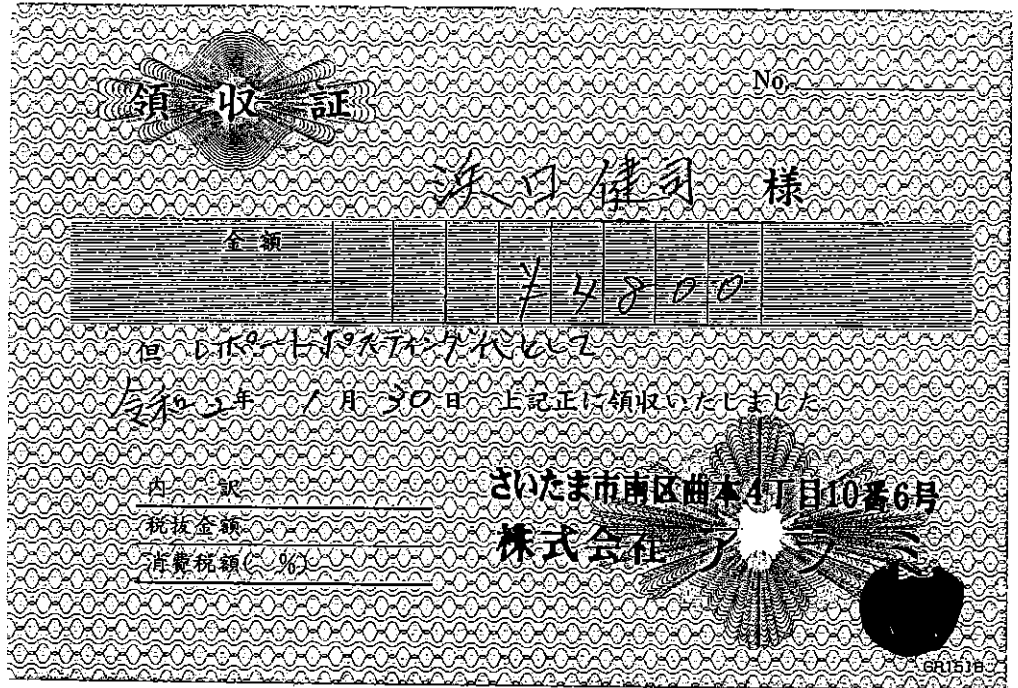 領収証
No.
浜口健司 様
金額
¥4800
但 レポートポスティング代として
令和2年 1月30日 上記正に領収いたしました
内 訳
税抜金額
消費税額( %)
さいたま市南区曲本4丁目10番6号
株式会社
GR1516